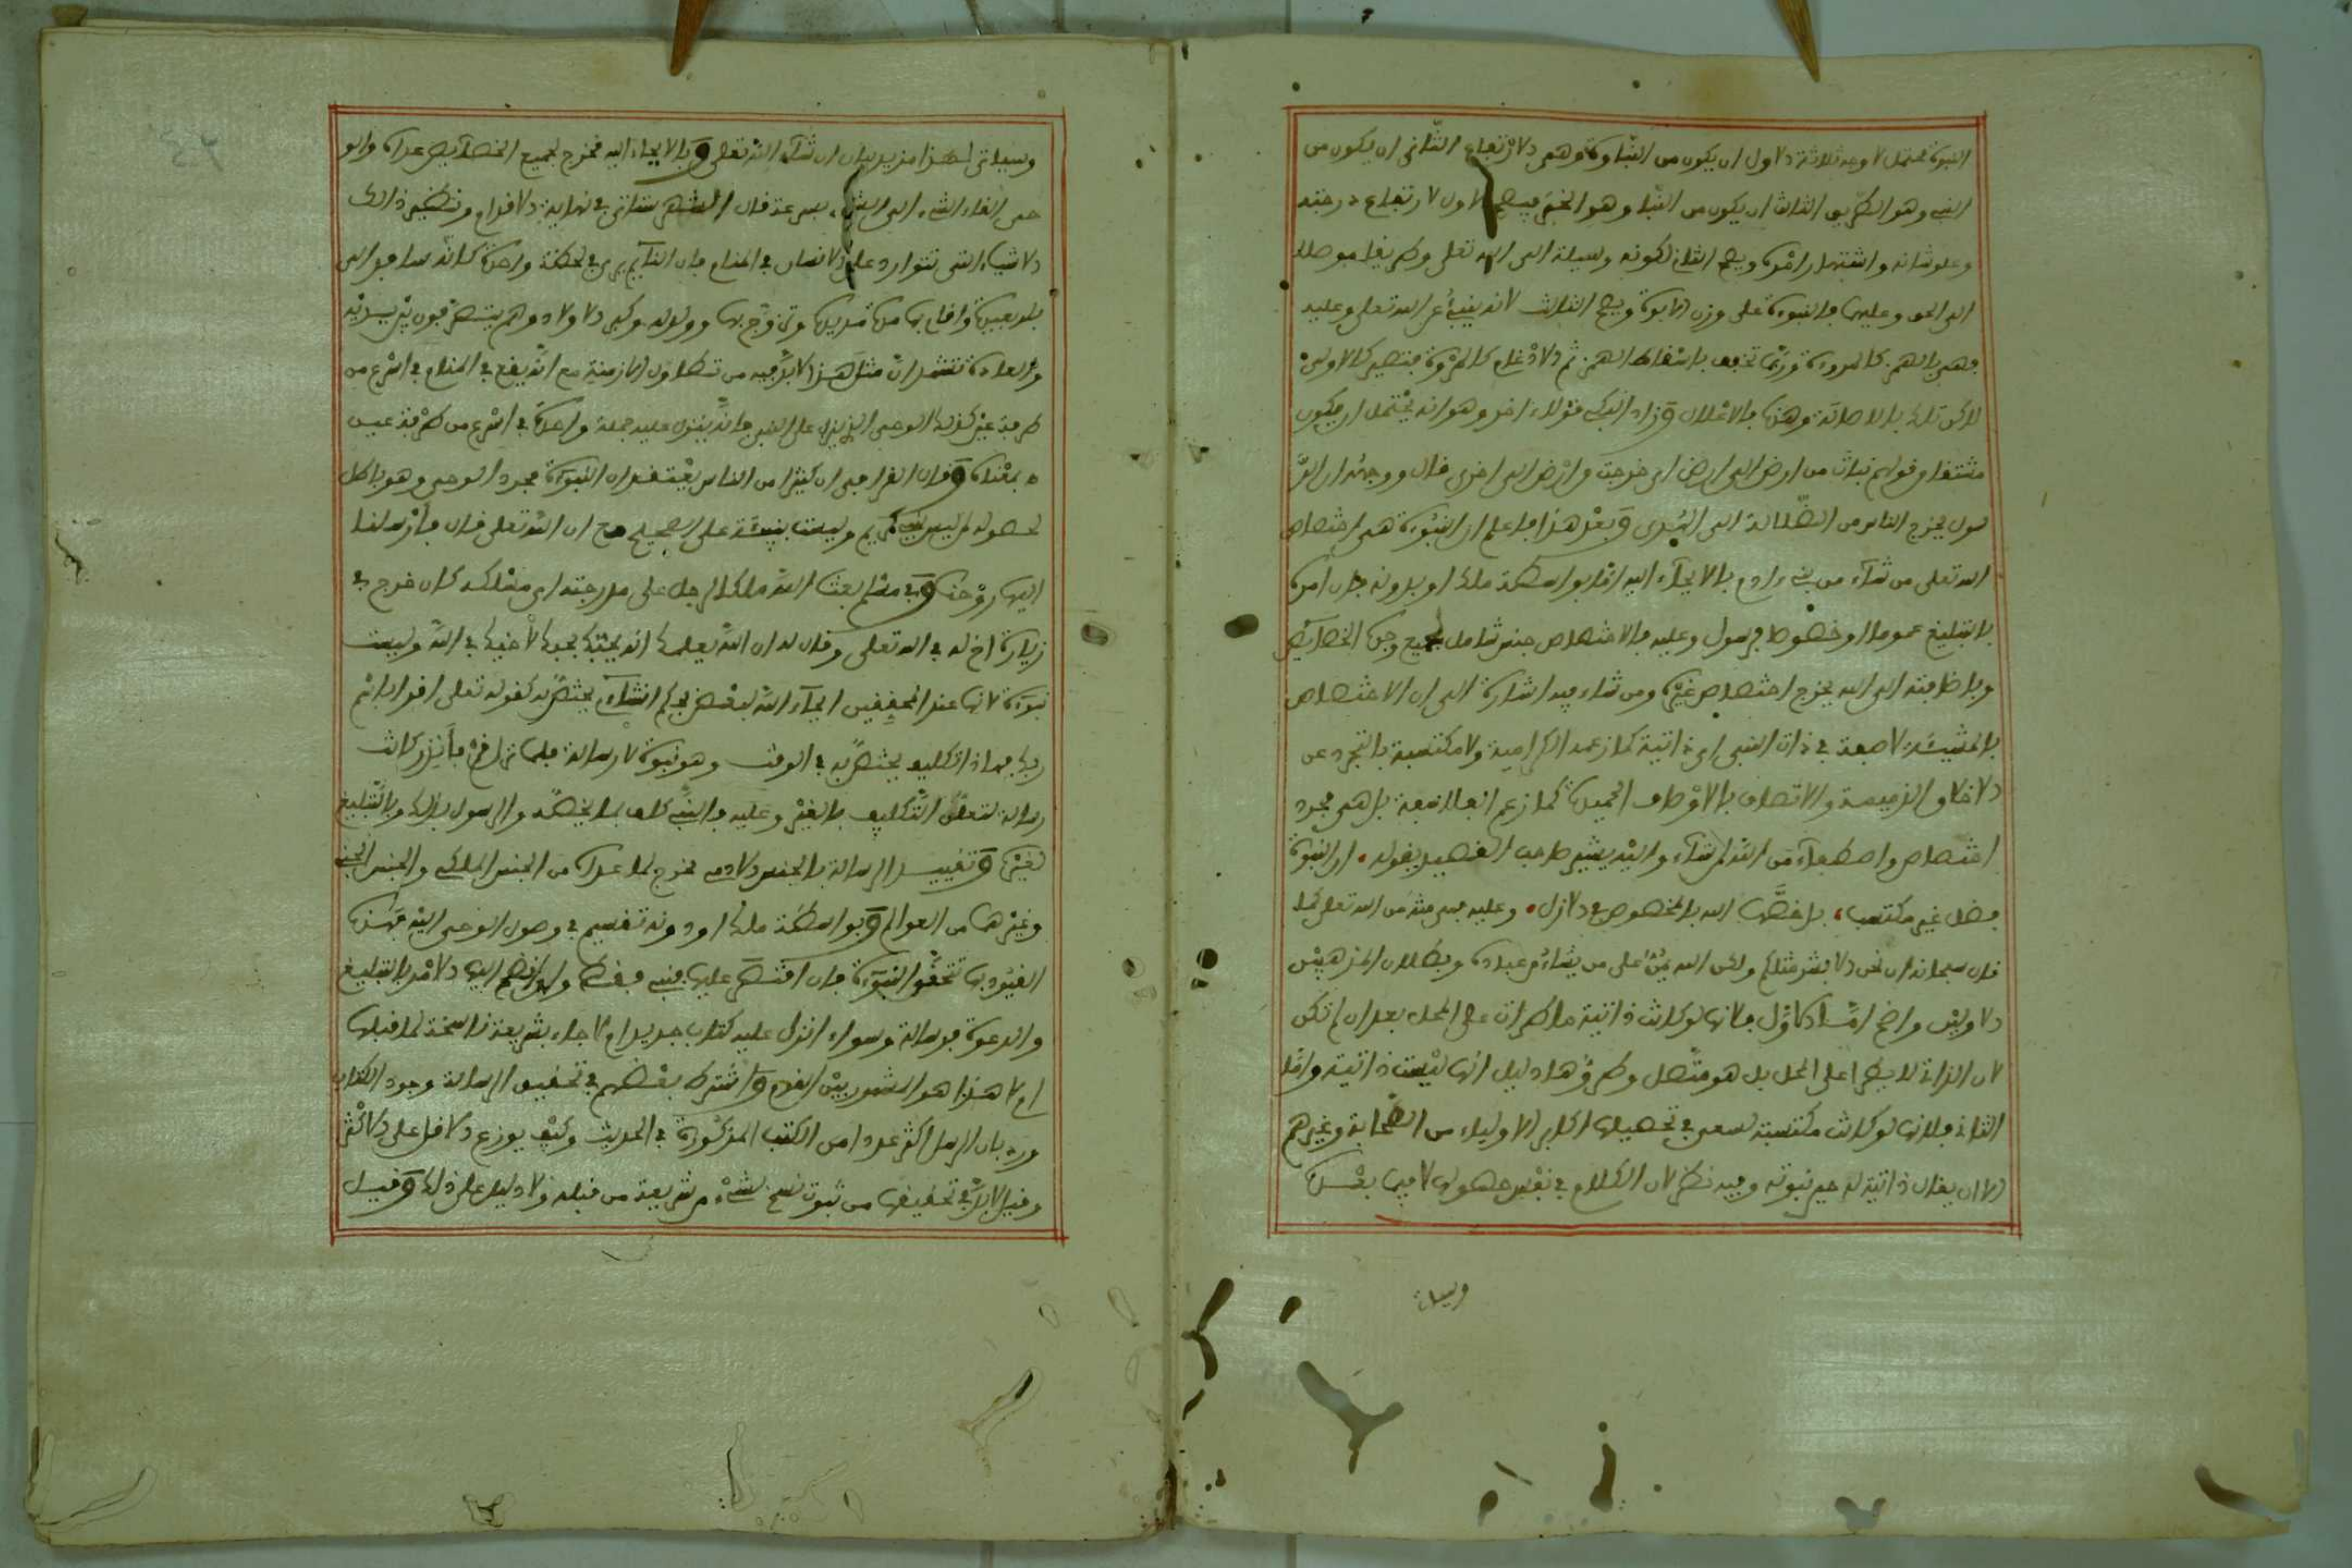 النبوة محتمل لاوجه ثلاثة الاول ان يكون من النباوة وهى الارتفاع الثانى ان يكون من
النبى وهو الطريق الثالث ان يكون من النبا وهو الخبر الاول لارتفاع درجته
وعلو شانه واشتهار امره الثانى لكونه وسيلة الى الله تعلى وطريقا موصلا
الى الحق وعليها فالنبوة على وزن الابوة الثالث لانه ينبئ عن الله تعلى وعليه
فهى بالهمز كالمروءة وربما تخفف باسقاط الهمز ثم الادغام كالمروة فتصير كالاولى
لاكن تلك بالاصالة وهذه بالاعلال وزاد اخر وهو انه يحتمل ان يكون
مشتقا من قولهم نبات من ارض الى ارض اى خرجت من ارض الى اخرى قال ووجهه ان الر
سول يخرج الناس من الضلالة الى الهدى وبعد هذا فاعلم ان النبوة هى اختصاص
الله تعلى من شاء من بنى ءادم بالايحاء اليه اما بواسطة ملك او بدونه فان امر
بالتبليغ عموما او خصوصا فرسول وعليه فالاختصاص جنس شامل لجميع وجوه الخصائص
وباضافته الى الله يخرج اختصاص غيره ومن شاء فيه اشارة الى ان الاختصاص
بالمشيئة لا صفة فى ذات النبى اى ذاتية كما زعمه الكرامية ولا مكتسبة بالتجرد عن
الاخلاق الذميمة والاتصاف بالاوصاف الحميدة كما زعم الفلاسفة بل هى مجرد
اختصاص واصطفاء من الله لمن شاء واليه يشير صاحب القصيد بقوله ، ان النبوة
فضل غير مكتسب ، بل خصها الله بالمخصوص فى الازل ، وعليه فهى منة من الله تعلى كما
قال سبحانه ان نحن الا بشر مثلكم ولكن الله يمن على من يشاء من عباده وبطلان المذهبين
الاولين واضح اما الاول فلانها لو كانت ذاتية ما طرات على المحل بعد ان لم تكن
لان الذاتى لا يطرا على المحل بل هو متصل وطروها دليل انها ليست ذاتية واما
الثانى فلانها لو كانت مكتسبة لسعى فى تحصيلها اكابر الاولياء من الصحابة وغيرهم
الا ان يقال ذاتية له حين نبوته وفيه نظر لان الكلام فى نفس حصولها لا فيما بعده
وسيا
وسياتى لهذا مزيد بيان ان شاء الله تعلى وبالايحاء اليه مخرج لجميع الخصائص عداه والو
حى القاء الشىء الى الشىء بسرعة قال الشهرستانى فى نهاية الاقدام ونظير ذالك
الاشياء التى تتوارد على الانسان فى المنام فان النائم يرى فى لحظة واحدة كانه سافر الى
بلد بعيدة واقام بها مدة مديدة وتزوج بها وولد له وكبر الاولاد وهم يتصرفون بين يديه
والعادة تقتضى ان مثل هذا لا بد فيه من تطاول ازمنة مع انه يقع فى المنام فى اسرع من
طرفة عين كذلك الوحى الذى ينزل على النبى فانه ينزل عليه جملة واحدة فى اسرع من طرفة عين
بمعناه وقال القرافى ان كثيرا من الناس يعتقد ان النبوة مجرد الوحى وهو باطل
لحصوله لمن ليس بنبى كمريم وليست بنبيئة على الصحيح مع ان الله تعلى قال فارسلنا
اليها روحنا وفى مسلم بعث الله ملكا لرجل على مدرجته اى مسلكه كان خرج فى
زيارة اخ له فى الله تعلى وقال له ان الله يعلمك انه يحبك بحبك لاخيك فى الله وليست
نبوة لانها عند المحققين ايحاء الله لبعض بحكم انشاءى يختص به كقوله تعلى اقرا باسم
ربك فهاذا تكليف يختص به فى الوقت وهو نبوة لا رسالة فلما نزل قم فانذر كانت
رسالة لتعلق التكليف بالغير وعليه فالنبى كلف بما يخصه والرسول بذلك وبالتبليغ
لغيره وتقييد الرسالة بالجنس الادمى مخرج لما عداه من الجنس الملكى والجنس الجنى
وغيرهما من العوالم وبواسطة ملك او دونه تقسيم فى وصول الوحى اليه فهذه
القيود بها تتحقق النبوة فان اقتصر عليها فنبى فقط وان انضم اليها الامر بالتبليغ
والدعوة فرسالة وسواء انزل عليه كتاب جديد ام لا جاء بشريعة ناسخة لما قبلها
ام لا هذا هو المشهور بين القوم واشترط بعضهم فى تحقيق الرسالة وجود الكتاب
ورد بان الرسل اكثر عددا من الكتب المذكورة فى الحديث وكيف يوزع الاقل على الاكثر
وقيل لا بد فى تحقيقها من ثبوت نسخ شىء من شريعة من قبله ولا دليل على ذلك وقيل